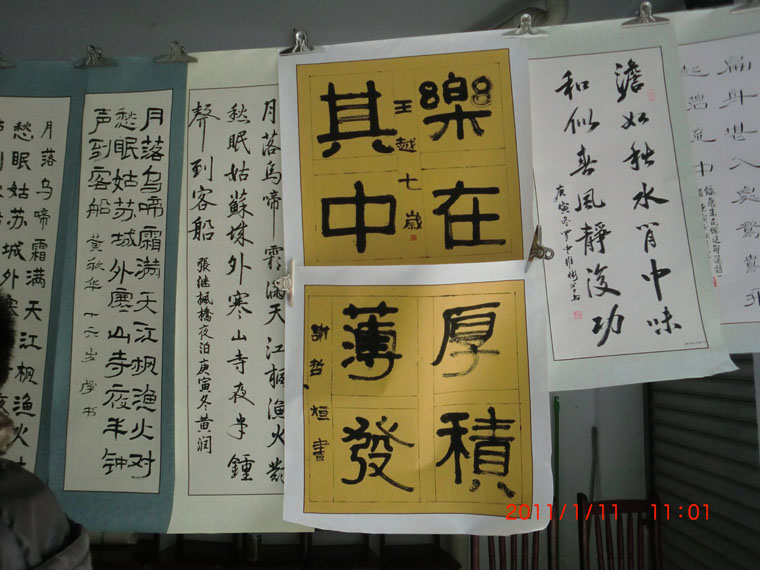 月落乌啼霜满天江枫渔火
愁眠姑苏城外
月落乌啼霜满天江枫渔火对
愁眠姑苏城外寒山寺夜半钟
声到客船
秋华 十六岁 学书
月落烏啼霜滿天江楓漁火對
愁眠姑蘇城外寒山寺夜半鍾
聲到客船
張继楓橋夜泊庚寅冬黄润
樂在
其中
王越七歲
厚積
薄發
謝哲烜書
澹如秋水胷中味
和似春風靜後功
庚寅冬
2011/1/11 11:01